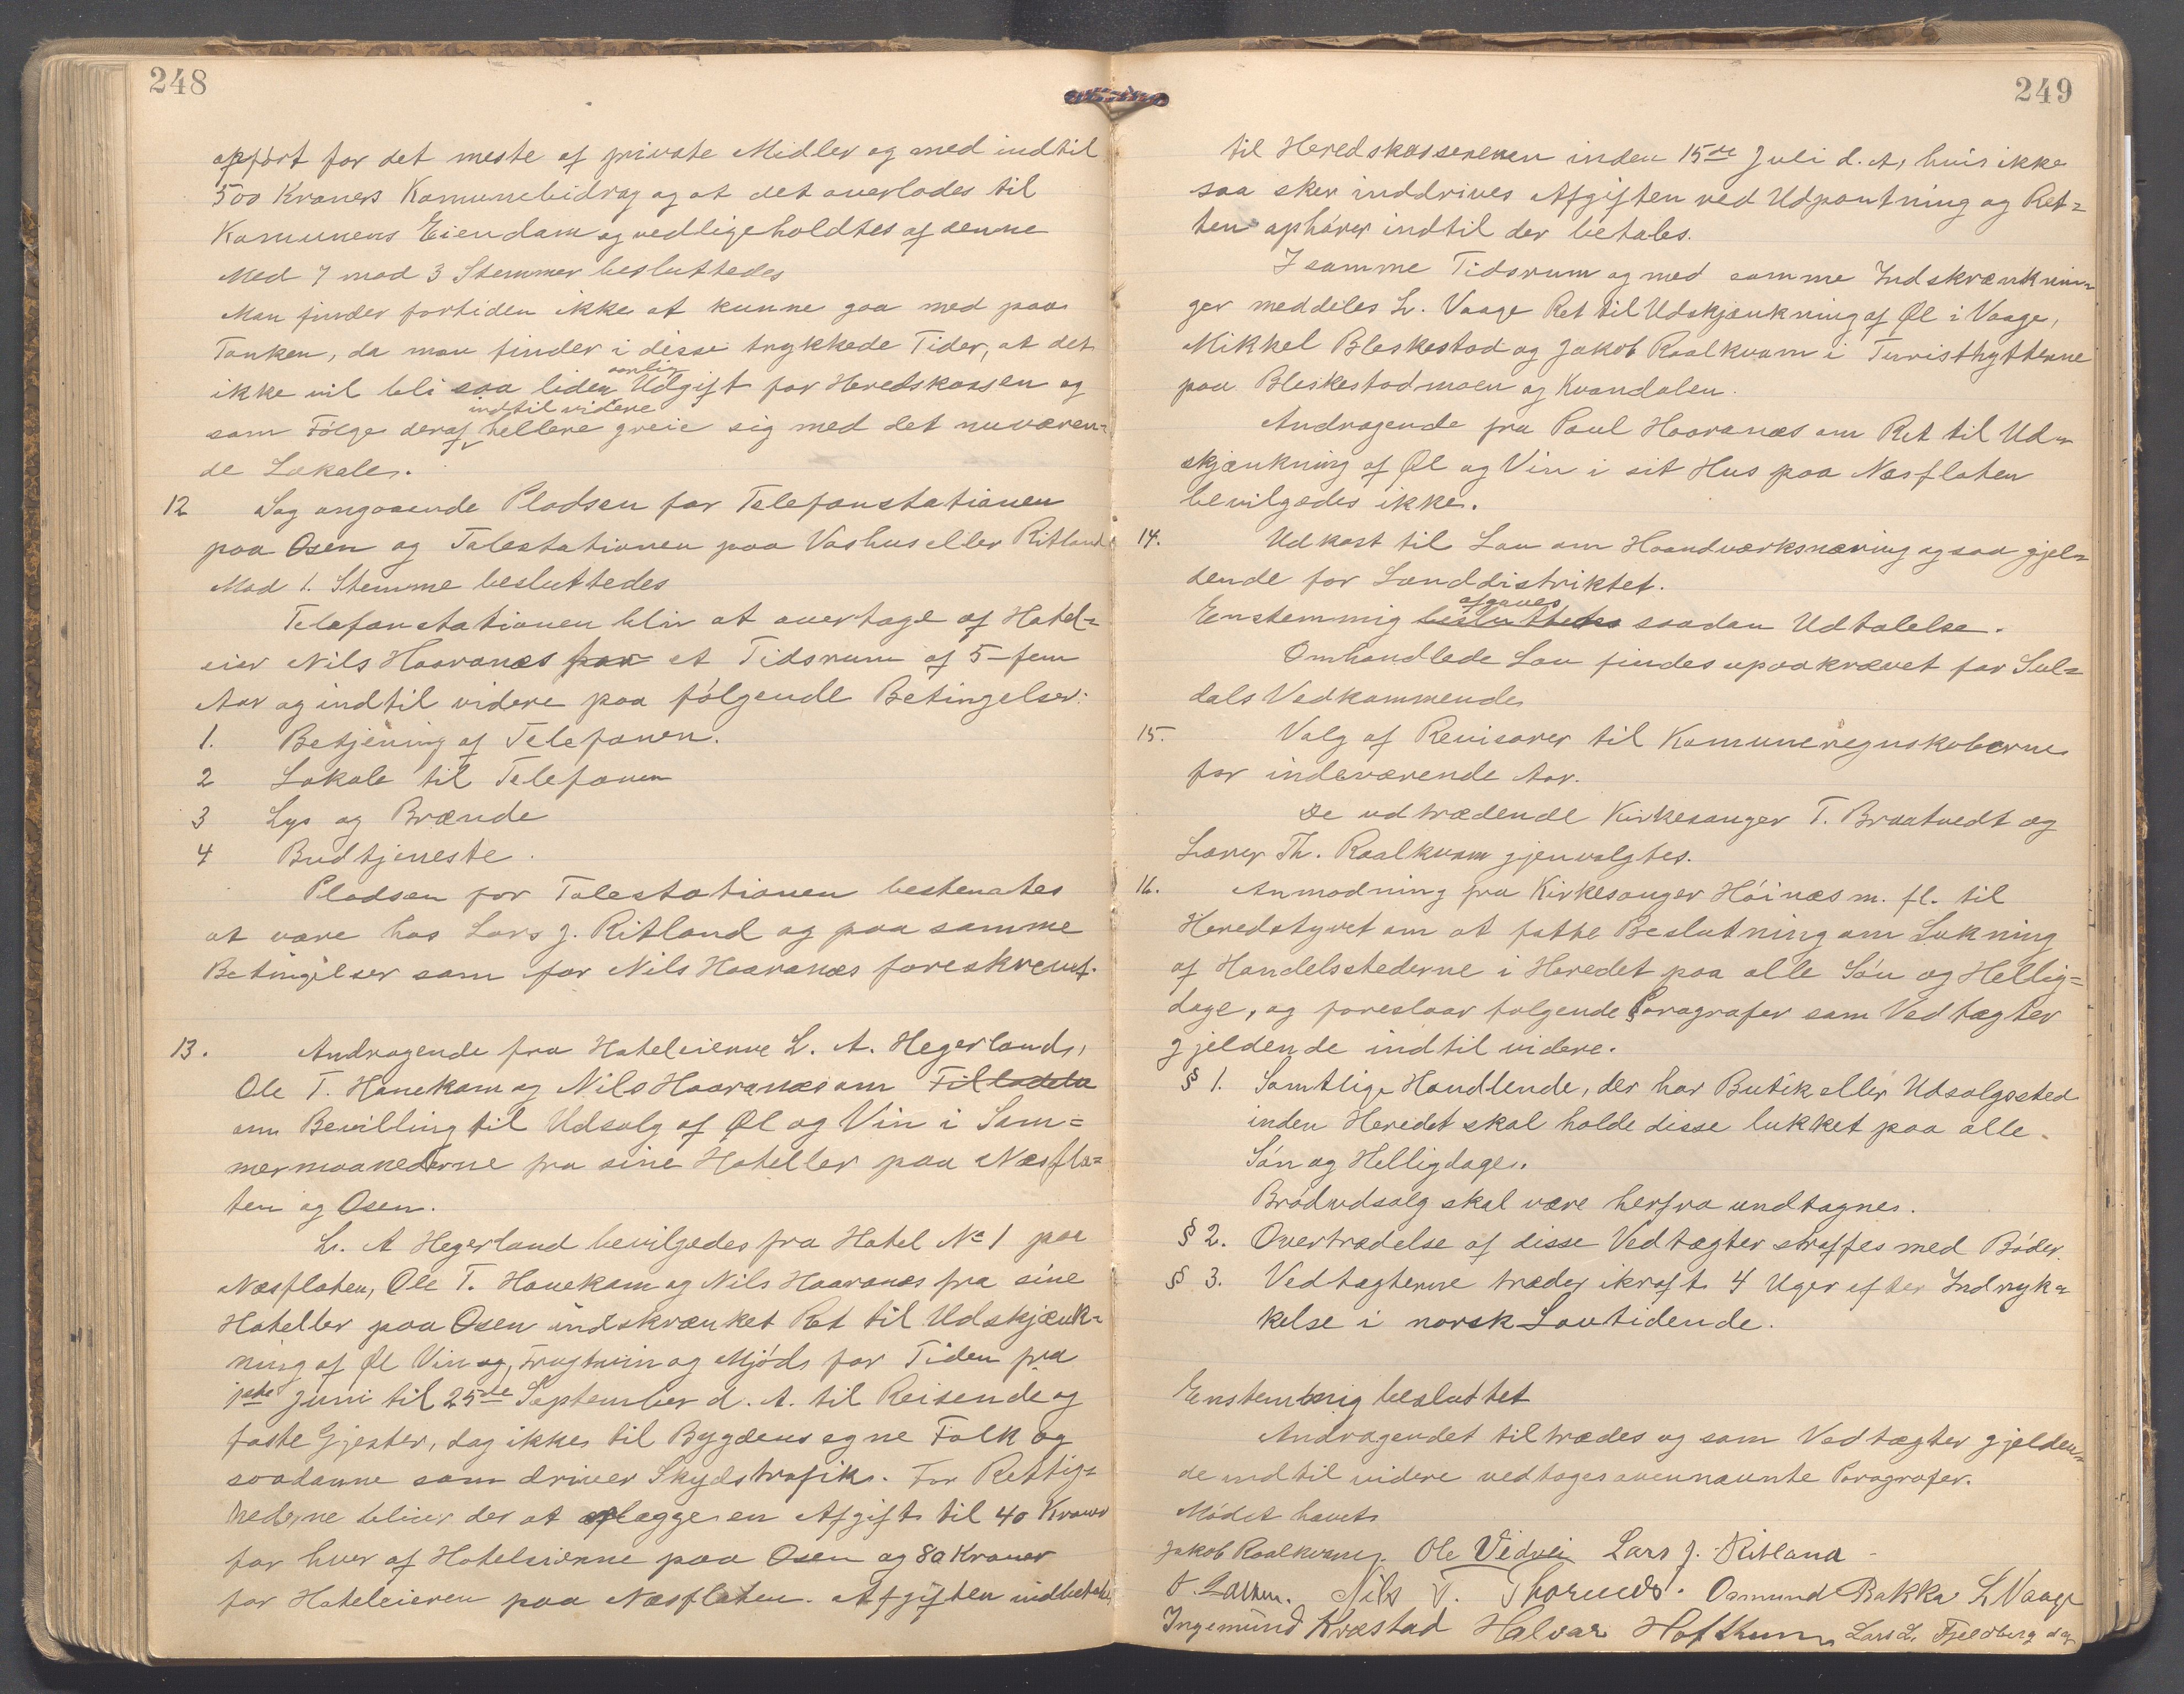 248
opført for det meste af private Midler og med indtil
500 Kroners Komunebidrag og at det overlodes til
Komunens Eiendom og vedligeholdtes af denne
Med 7 mod 3 Stemmer besluttedes
Man finder fortiden ikke at kunne gaa med paa
Tanken, da man finder i disse trykkede Tider, at det
ikke vil bli saa liden aarlig Udgift for Heredskassen og
som Følge deraf indtil videre hellere greie sig med det nuværen-
de Lokale.
12 Sag angaaende Pladsen for Telefonstationen
paa Osen og Talestationen paa Vashus eller Ritland
Mod 1. Stemme besluttedes
Telefonstationen blir at overtage af Hotel-
eier Nils Haaranæs for et Tidsrum af 5-fem
Aar og indtil videre paa følgende Betingelser:
1. Betjening af Telefonen.
2 Lokale til Telefonen
3 Lys og Brænde
4 Budtjeneste.
Pladsen for Talestationen bestemtes
at være hos Lars J. Ritland og paa samme
Betingelser som for Nils Haaranæs foreskrevet.
13. Andragende fra Hoteleierne L. A. Hegerlands,
Ole T. Hanekam og Nils Haaranæs om Tilladela
om Bevilling til Udsalg af Øl og Vin i Som=
mermaanederne fra sine Hoteller paa Næsfla=
ten og Osen.
L. A Hegerland bevilgedes fra Hotel No 1 paa
Næsflaten, Ole T. Hanekam og Nils Haaranæs fra sine
Hoteller paa Osen indskrænket Ret til Udskjænk=
ning af Øl Vin og, Frugtvin og Mjöd for Tiden fra
1ste Juni til 25de September d. A. til Reisende og
faste Gjester, dog ikke til Bygdens egne Folk og
saadanne som driver Skydstrafik. For Rettig=
hederne bliver der at erlægge en Afgift til 40 Kroner
for hver af Hoteleierne paa Osen og 80 Kroner
for Hoteleieren paa Næsflaten. Afgiften indbetales
249
til Heredskassereren inden 15de Juli d. A, hvis ikke
saa sker inddrives Afgiften ved Udpantning og Ret=
ten ophører indtil der betales.
I samme Tidsrum og med samme Indskrænknin=
ger meddeles L. Vaage Ret til Udskjænkning af Øl i Vaage,
Mikkel Bleskestad og Jakob Roalkvam i Turisthytterne
paa Bleskestadmoen og Kvandalen.
Andragende fra Paul Haaranæs om Ret til Ud=
skjænkning af Øl og Vin i sit Hus paa Næsflaten
bevilgedes ikke.
14. Udkast til Lov om Haandværksnæring ogsaa gjel=
dende for Landdistriktet.
Enstemmig besluttedes afgaves saadan Udtalelse.
Omhandlede Lov findes upaakrævet for Sul=
dals Vedkommende
15. Valg af Revisorer til Komuneregnskaberne
for indeværende Aar.
De udtrædende Kirkesanger T. Braatvedt og
Lærer Th. Roalkvam gjenvalgtes.
16. Anmodning fra Kirkesanger Höinæs m. fl. til
Heredstyret om at fatte Beslutning om Lukning
af Handelsstederne i Heredet paa alle Søn og Hellig=
dage, og foreslaar følgende Paragrafer som Vedtægter
gjeldende indtil videre.
§ 1. Samtlige Handlende, der har Butik eller Udsalgssted
inden Heredet skal holde disse lukket paa alle
Søn og Helligdage.
Brödudsalg skal være herfra undtagne.
§ 2. Overtrædelse af disse Vedtægter straffes med Böder.
§ 3. Vedtægterne træder ikraft 4 Uger efter Indryk=
kelse i norsk Lovtidende.
Enstemmig besluttet
Andragendet tiltrædes og som Vedtægter gjelden=
de indtil videre vedtages ovennævnte Paragrafer.
Mödet hævet
Jakob Roalkvam. Ole Vidvei Lars J. Ritland
Nils T. Osmund Bakka L Vaage
Ingemund Kvæstad Halvar Hoftun Lars L. Fjeldberg